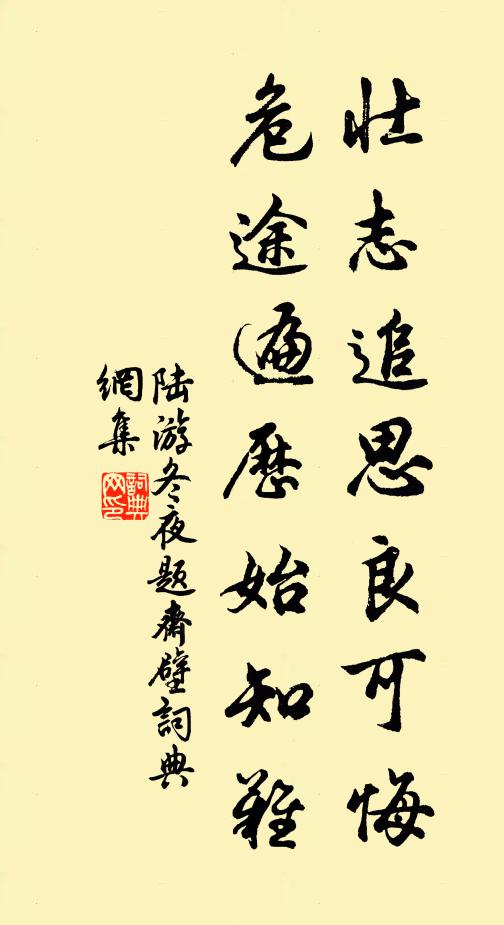 壮志追思良可悔
危途遍歷始知難
陆游冬夜题齋壁詞典
網集
詞典
网印